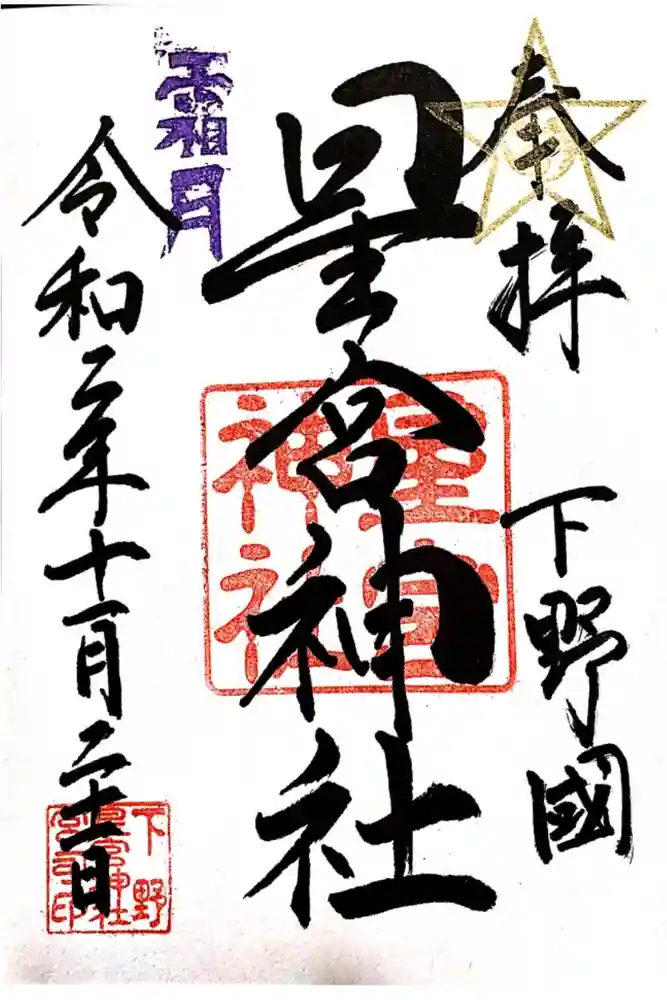 奉拝
下野國
星宮神社
星宮
神社
霜月
令和二年十一月二十一日
下野
星宮神社
宮司之印